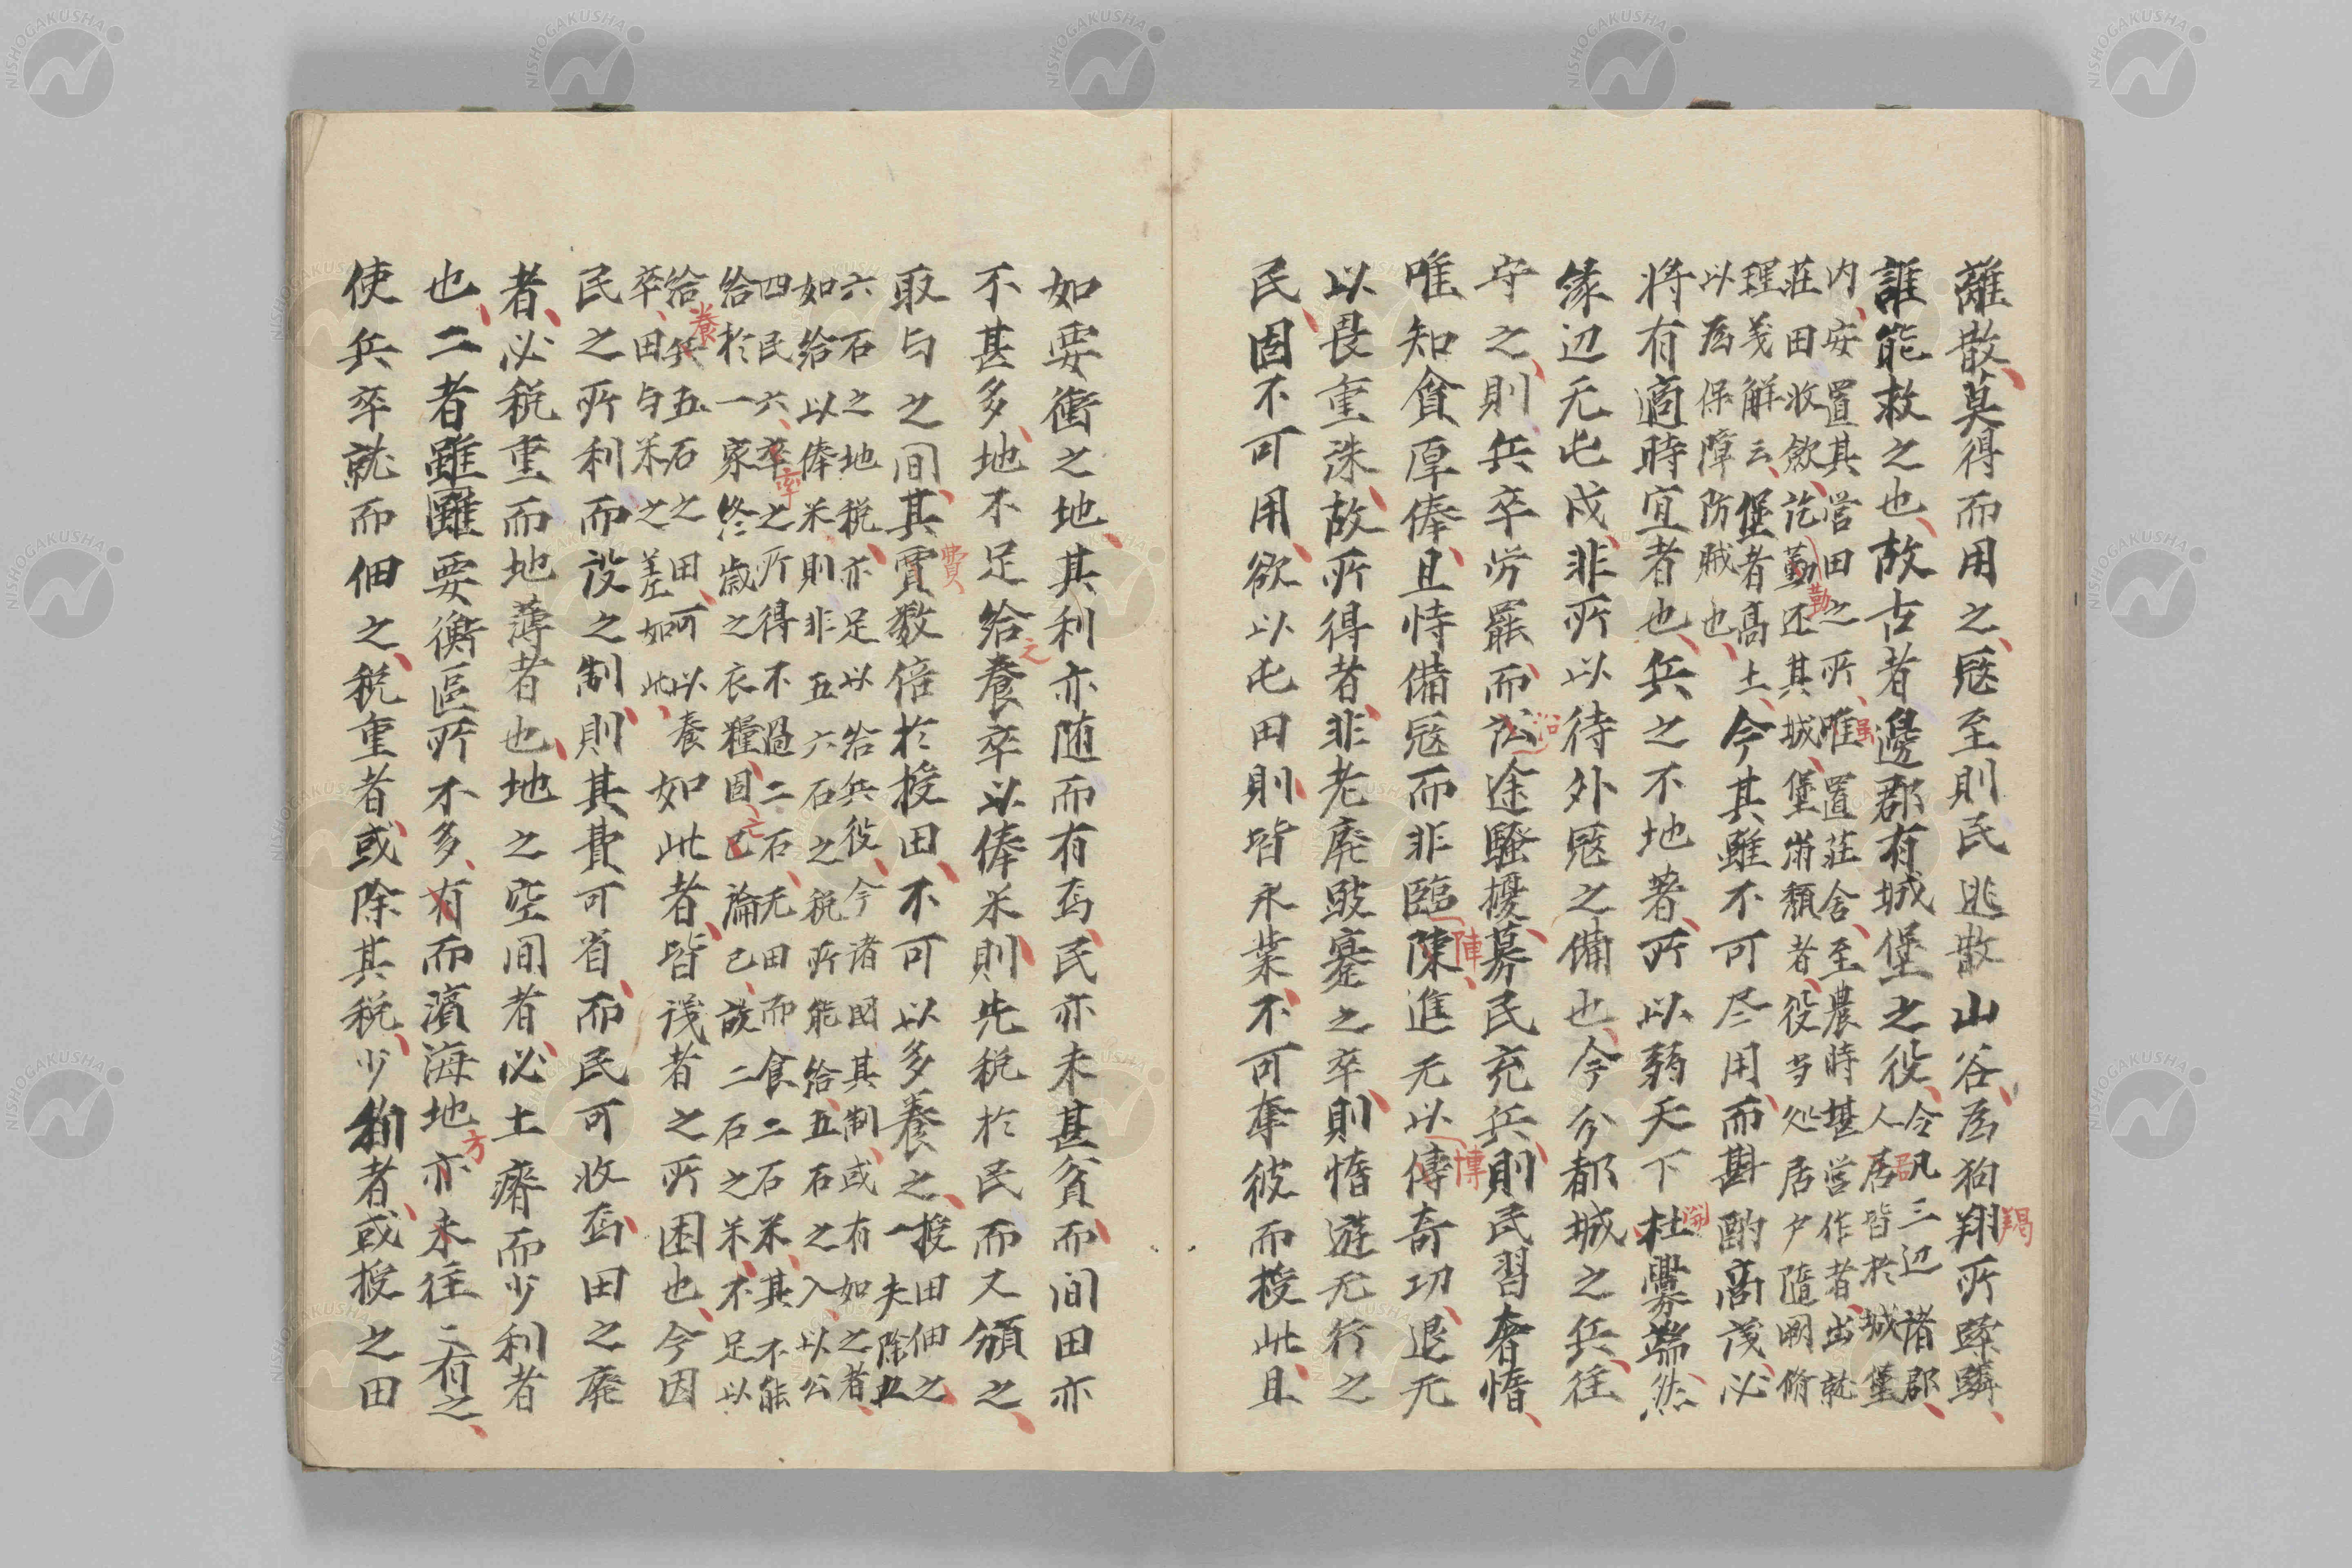 離散莫得而用之寇至則民逃散山谷為狗翔所蹂躪
羯
誰能救之也故古者邊郡有城堡之役
令凡三辺諸郡
人居皆於城堡
内安置其営田之所唯置荘舎至農時堪営作者出就
荘田收歛訖勤还其城堡崩頽者役当処居戸隨閑脩
勤
理義解云堡者高土
以為保障防賊也
今其雖不可尽用而斟酌高茂必
将有適時宜者也兵之不地著所以弱天下杜釁端然
開
缘辺无屯戍非所以待外寇之備也今分都城之兵往
守之則兵卒労罷而訟途騒擾募民充兵則民習奢惰
沿
唯知貪厚俸且恃備寇而非臨陳進无以傳奇功退无
陣
博
以畏重洙故所得者非老廃跛蹇之卒則惰遊无行之
民固不可用欲以屯田則皆永業不可奪彼而授此且
如要衝之地其利亦随而有焉民亦未甚貧而间田亦
不甚多地不足給養卒以俸米則先税於民而又頒之
之
取与之间其賣数倍於授田不可以多養之
費
一授田佃之
夫除五
六石之地税亦足以給兵役今諸國其制或有如之者
如給以俸米則非五六石之税所能給五石之入以公
四民六卒之所得不過二石无田而食二石米其不能
率
給於一家终歳之衣糧固已論已設二石之米不足以
亡
給兵五石之田可以養
養
卒田与米之差如此
如此者皆浅者之所困也今因
民之所利而设之制則其費可省而民可收焉田之廃
者必税重而地薄者也地之空间者必土瘠而少利者
也二者雖雖要衝區所不多有而濱海地亦未往二有之
方
使兵卒就而佃之税重者或除其税少利者或授之田